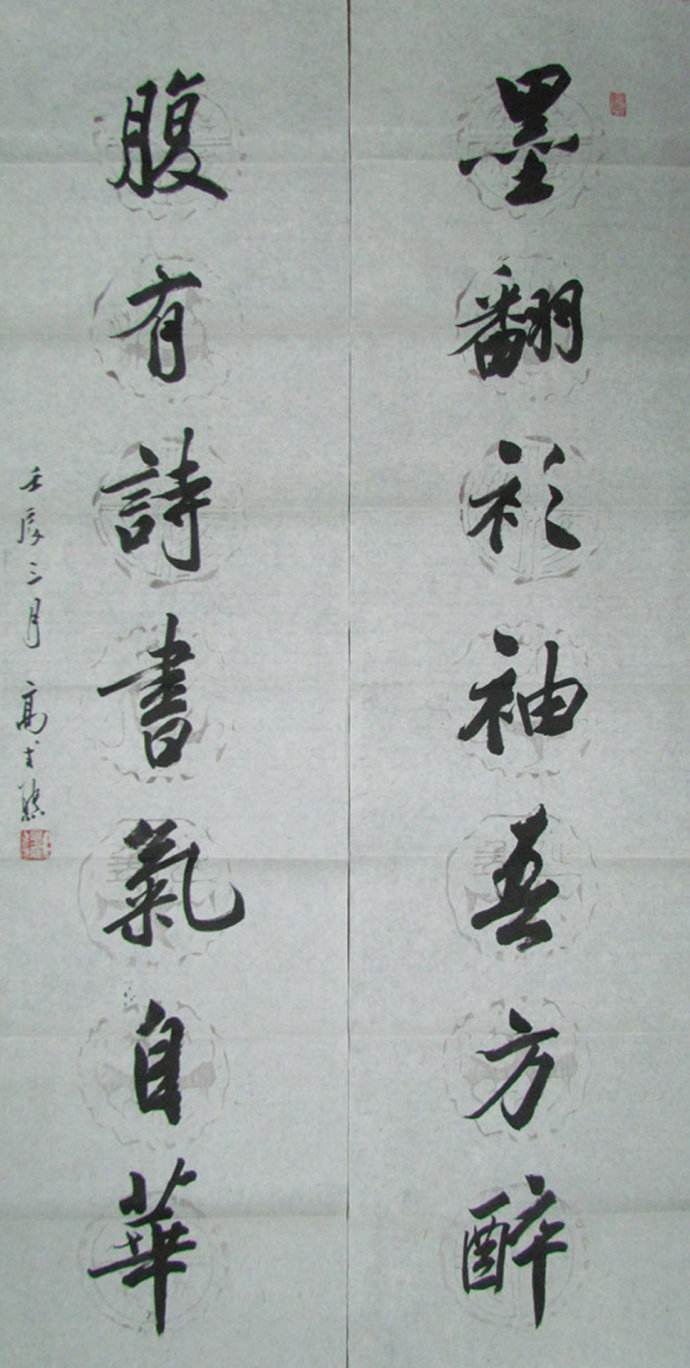 墨翻衫袖吾方醉
腹有詩書氣自華
壬辰三月 高